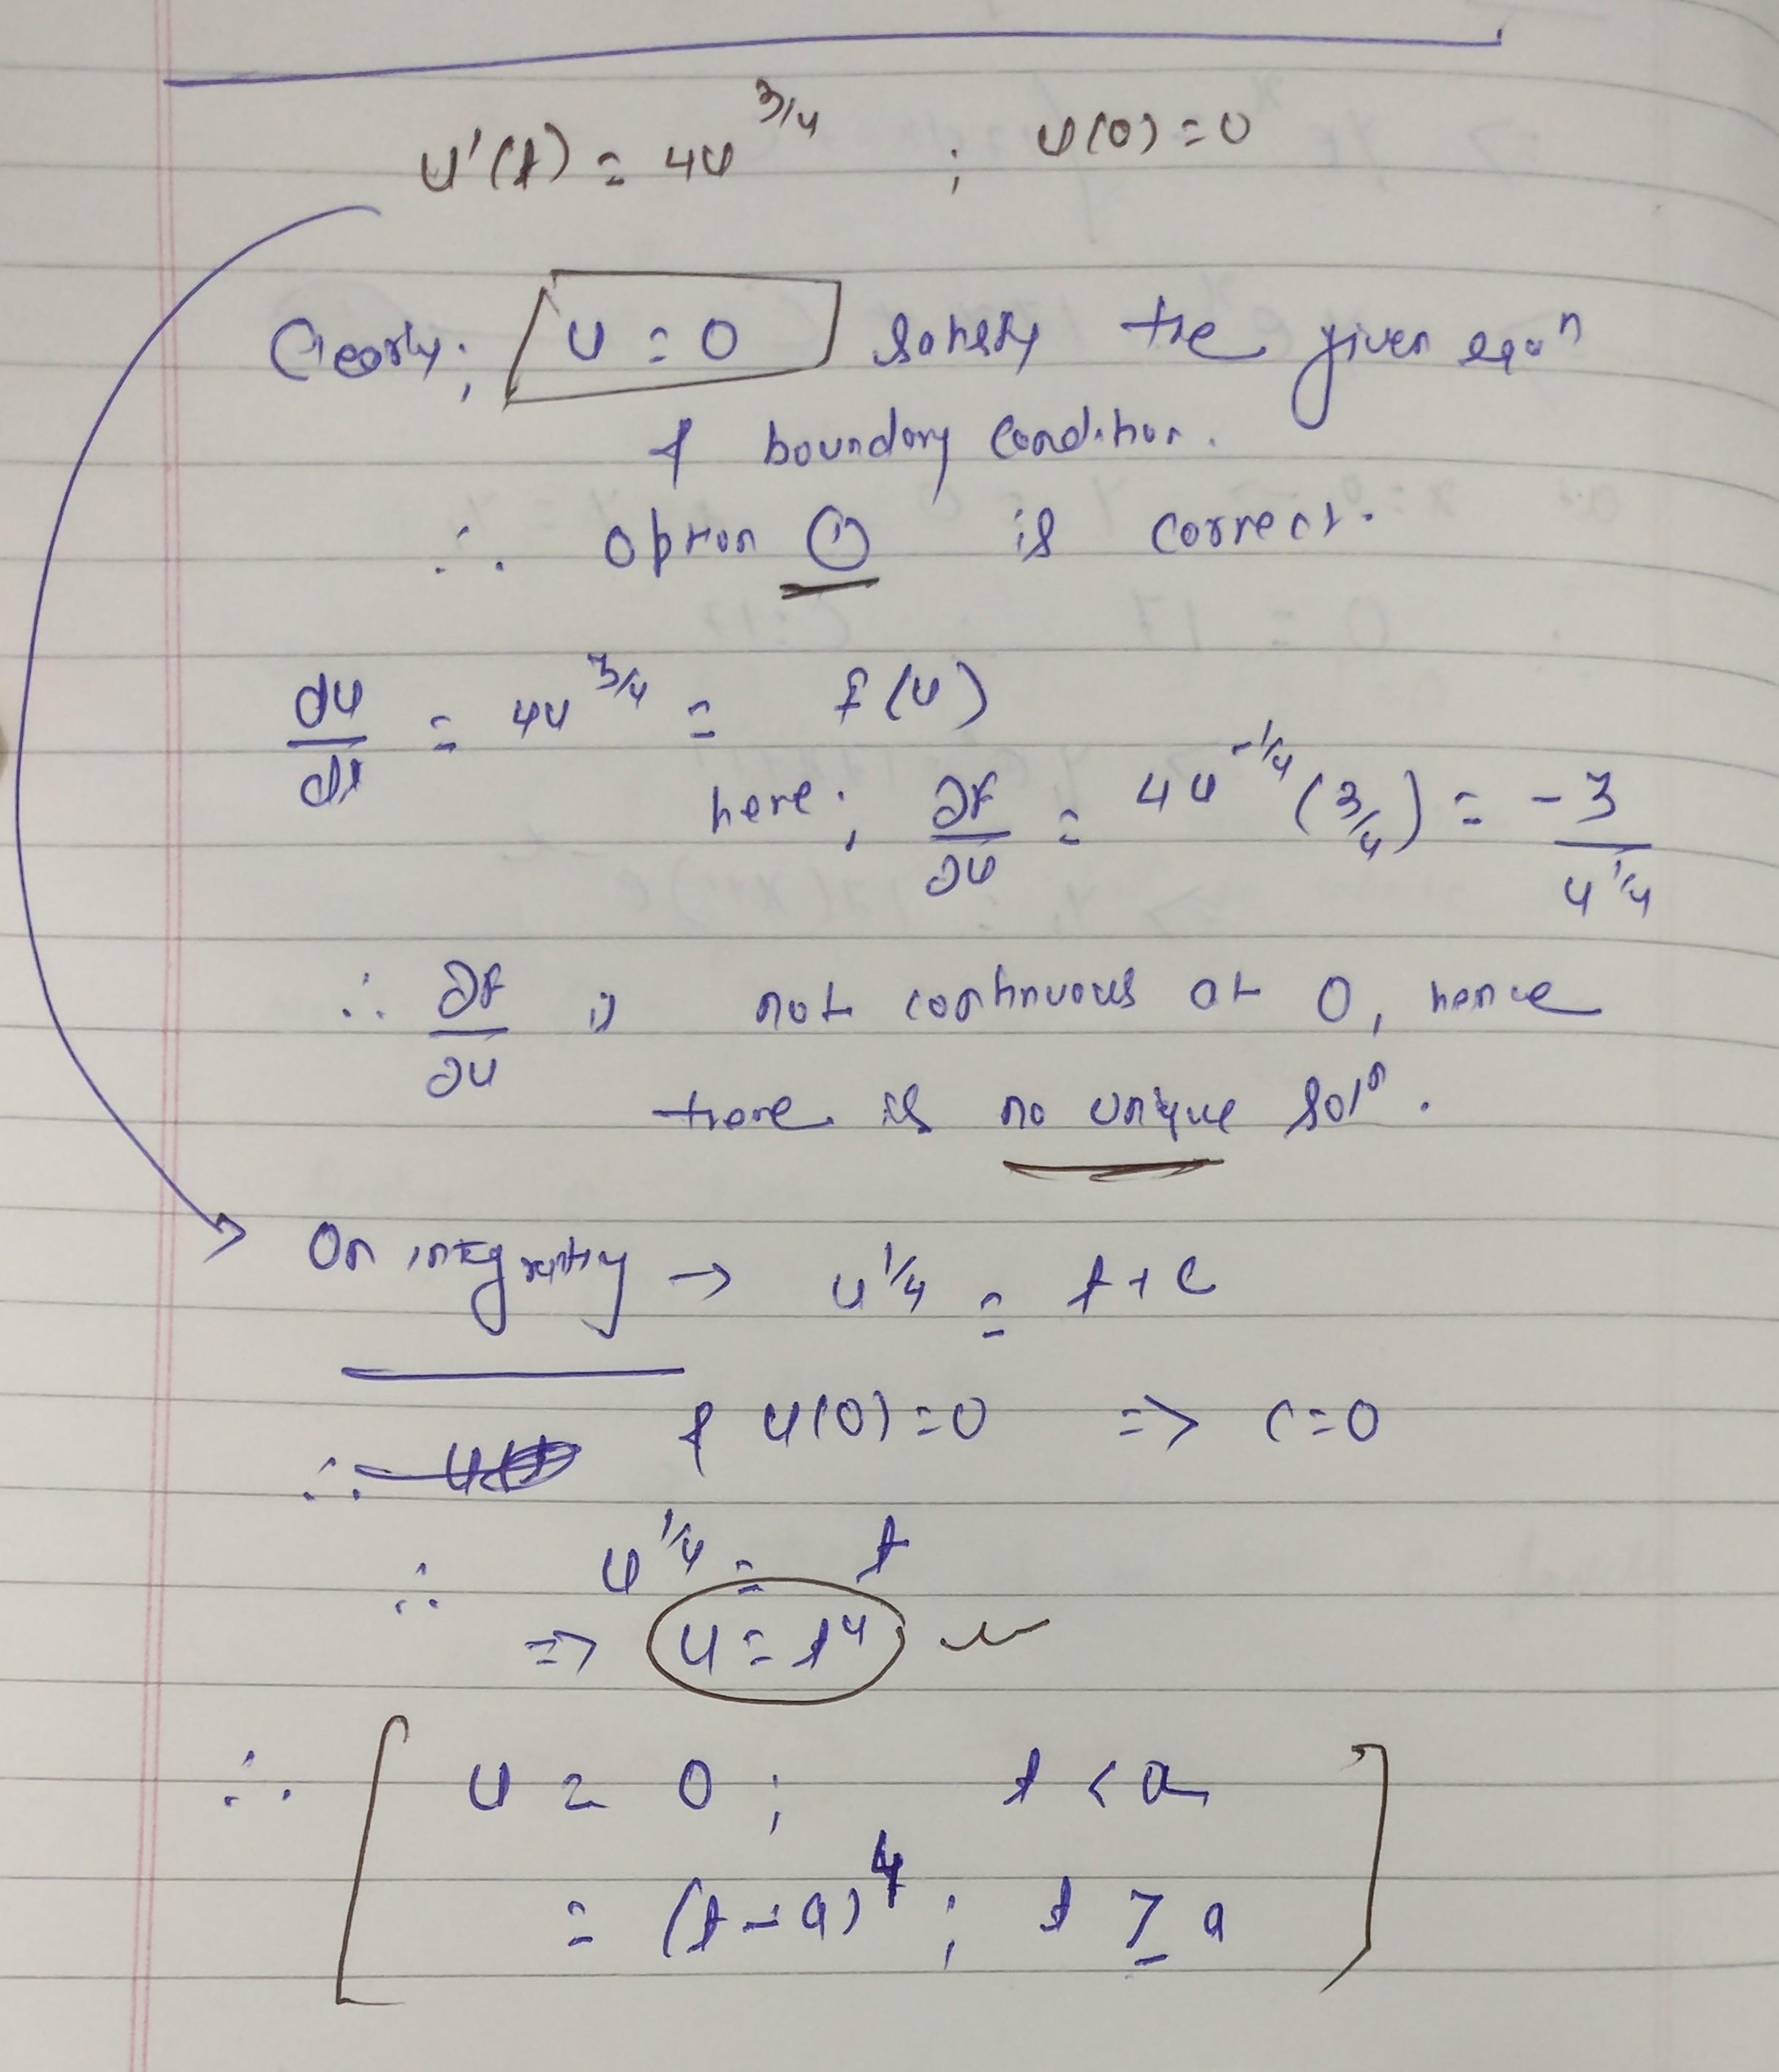 u'(t) = 4u^{3/4} ; u(0) = 0
Clearly; u = 0 satisfy the given eqn
& boundary condition.
∴ option ① is correct.
du/dt = 4u^{3/4} = f(u)
here; ∂f/∂u = 4u^{-1/4} (3/4) = -3/u^{1/4}
∴ ∂f/∂u is not continuous at 0, hence
there is no unique soln.
On integrating → u^{1/4} = t + c
& u(0) = 0 => c = 0
∴
∴ u^{1/4} = t
=> u = t^4
∴ u = 0 ; t < a
= (t - a)^4 ; t ≥ a